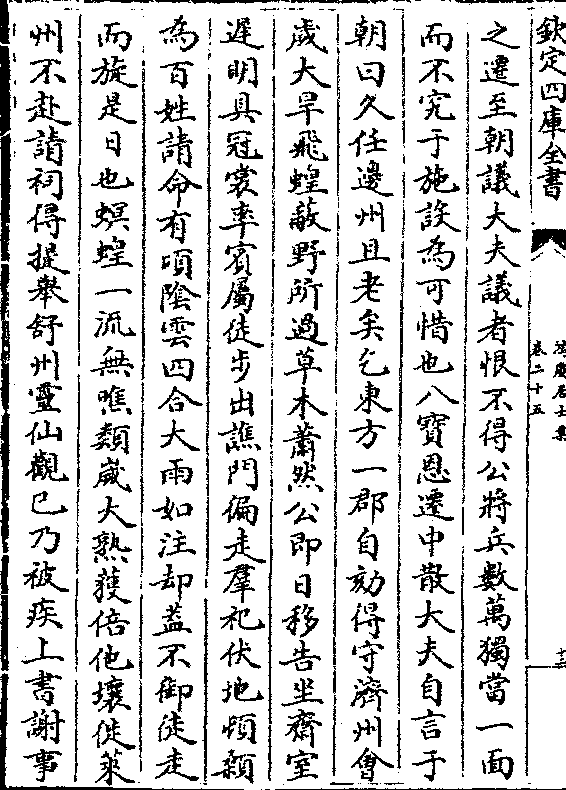 欽定四庫全書
卷二十五
之遷至朝議大夫議者恨不得公將兵數萬獨當一面
而不究于施設為可惜也八寶恩遷中散大夫自言于
朝曰久任邊州且老矣乞東方一郡自劾得守濟州會
歲大旱飛蝗蔽野所過草木蕭然公即日移告坐齋室
遲明具冠裳率賓屬徒步出譙門偏走羣祀伏地頓顙
為百姓請命有頃陰雲四合大雨如注却蓋不御徒走
而旋是日也螟蝗一流無噍類歲大熟穫倍他壤徙萊
州不赴請祠得提舉舒州靈仙觀已乃被疾上書謝事